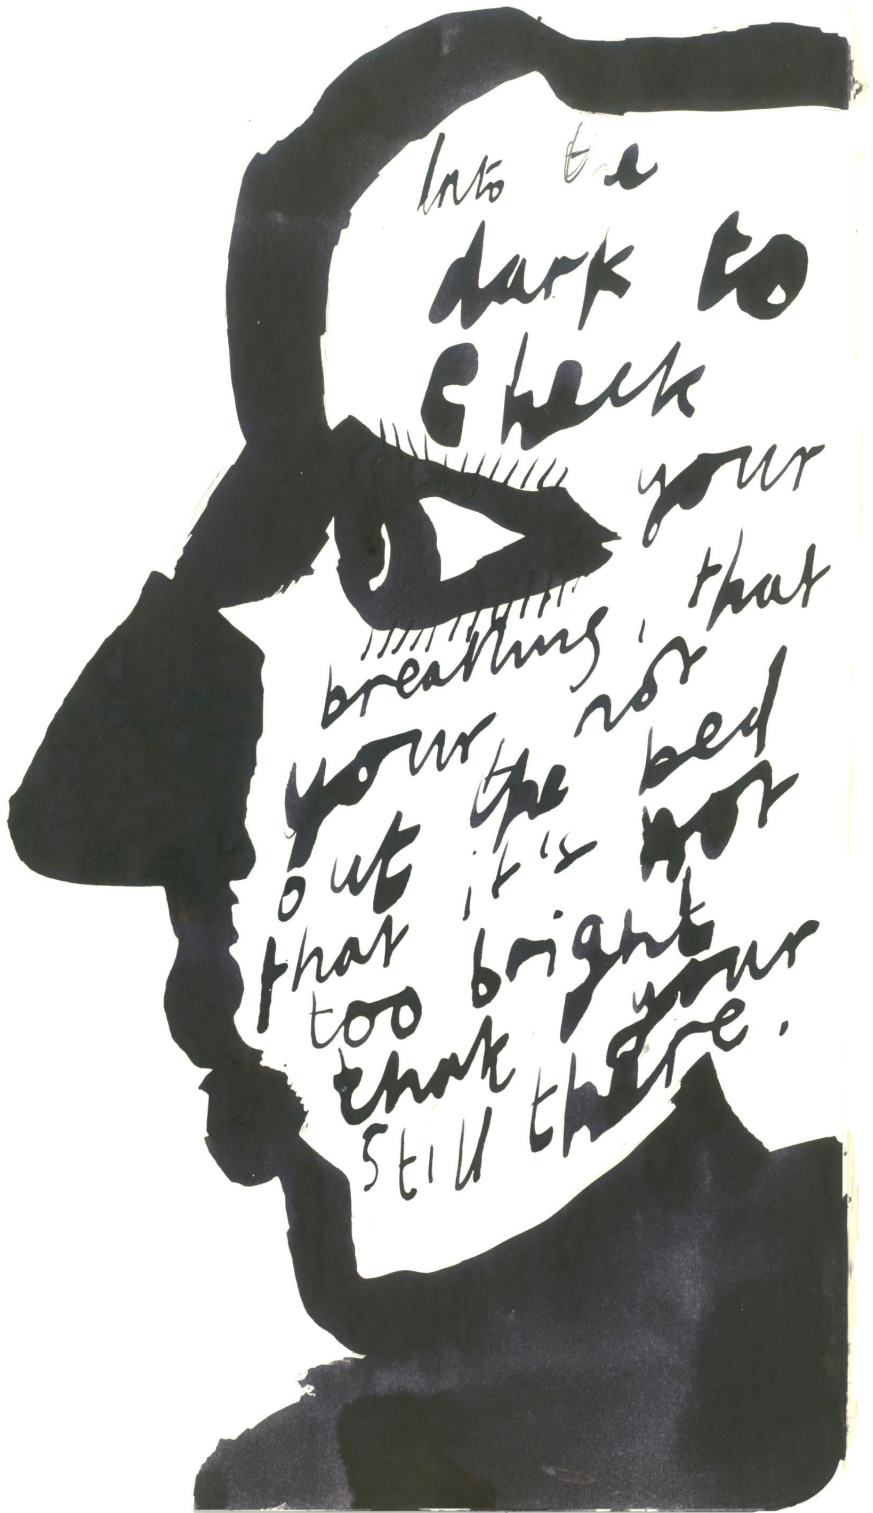 Into the
dark to
check
your
breathing, that
your not
out the bed
that it's not
too bright
that your
still there.